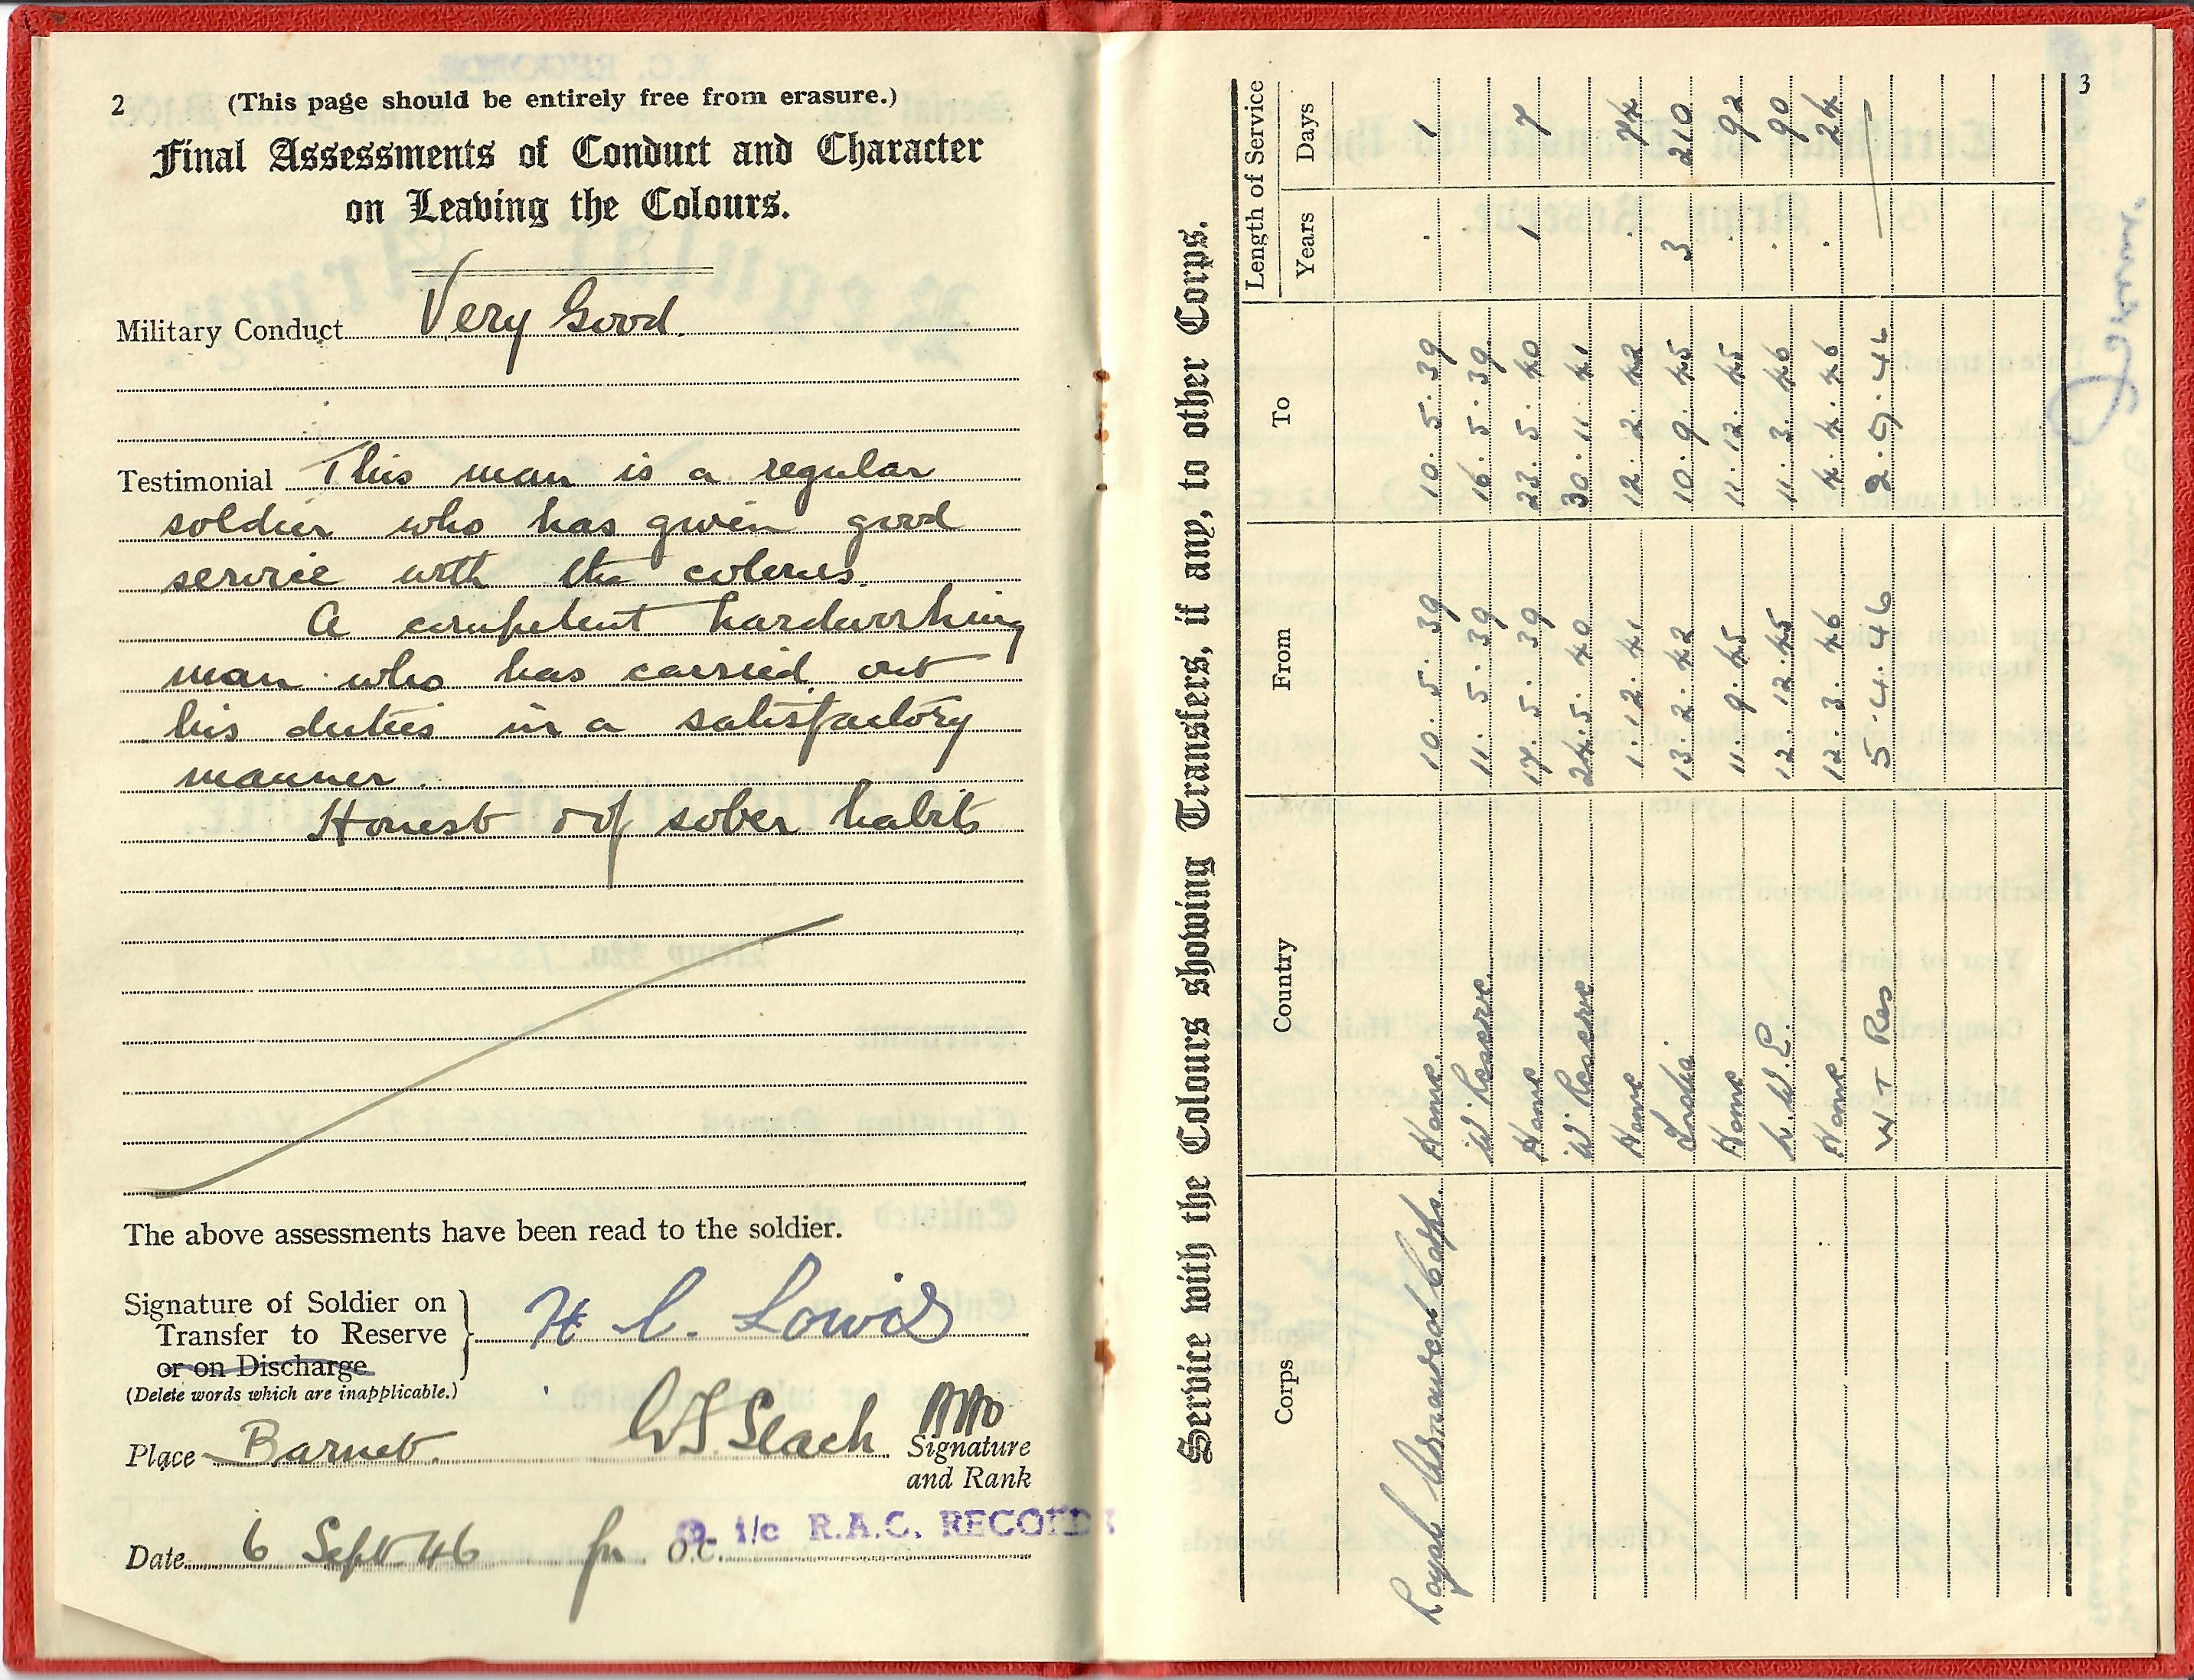 2 (This page should be entirely free from erasure.)
Final Assessments of Conduct and Character
on Leaving the Colours.
Military Conduct Very Good.
Testimonial This man is a regular
soldier who has given good
service with the colours.
A competent hardworking
man who has carried out
his duties in a satisfactory
manner.
Honest & of sober habits
The above assessments have been read to the soldier.
Signature of Soldier on
Transfer to Reserve
or on Discharge
H C. Lowis
(Delete words which are inapplicable.)
Place Barnet. Slach Signature
and Rank
Date 6 Sept 46 for O.C. i/c R.A.C. RECORDS
3
Service with the Colours showing Transfers, if any, to other Corps.
Corps Country From To Length of Service
Years Days
Royal Armoured Corps. Home. 10. 5. 39 10. 5. 39 . 1
W. Reserve. 11. 5. 39 16. 5. 39.
Home 17. 5. 39 23. 5. 40 1 7
W. Reserve 24. 5. 40 30. 11. 41
Home 1. 12. 41 12. 2. 42 . 74
India. 13. 2. 42 10. 9. 45 3 210
Home 11. 9. 45 11. 12. 45 . 92
12. 12. 45 11. 3. 46 . 90
Home. 12. 3. 46 4. 4. 46 . 24
W + Res 5. 4. 46